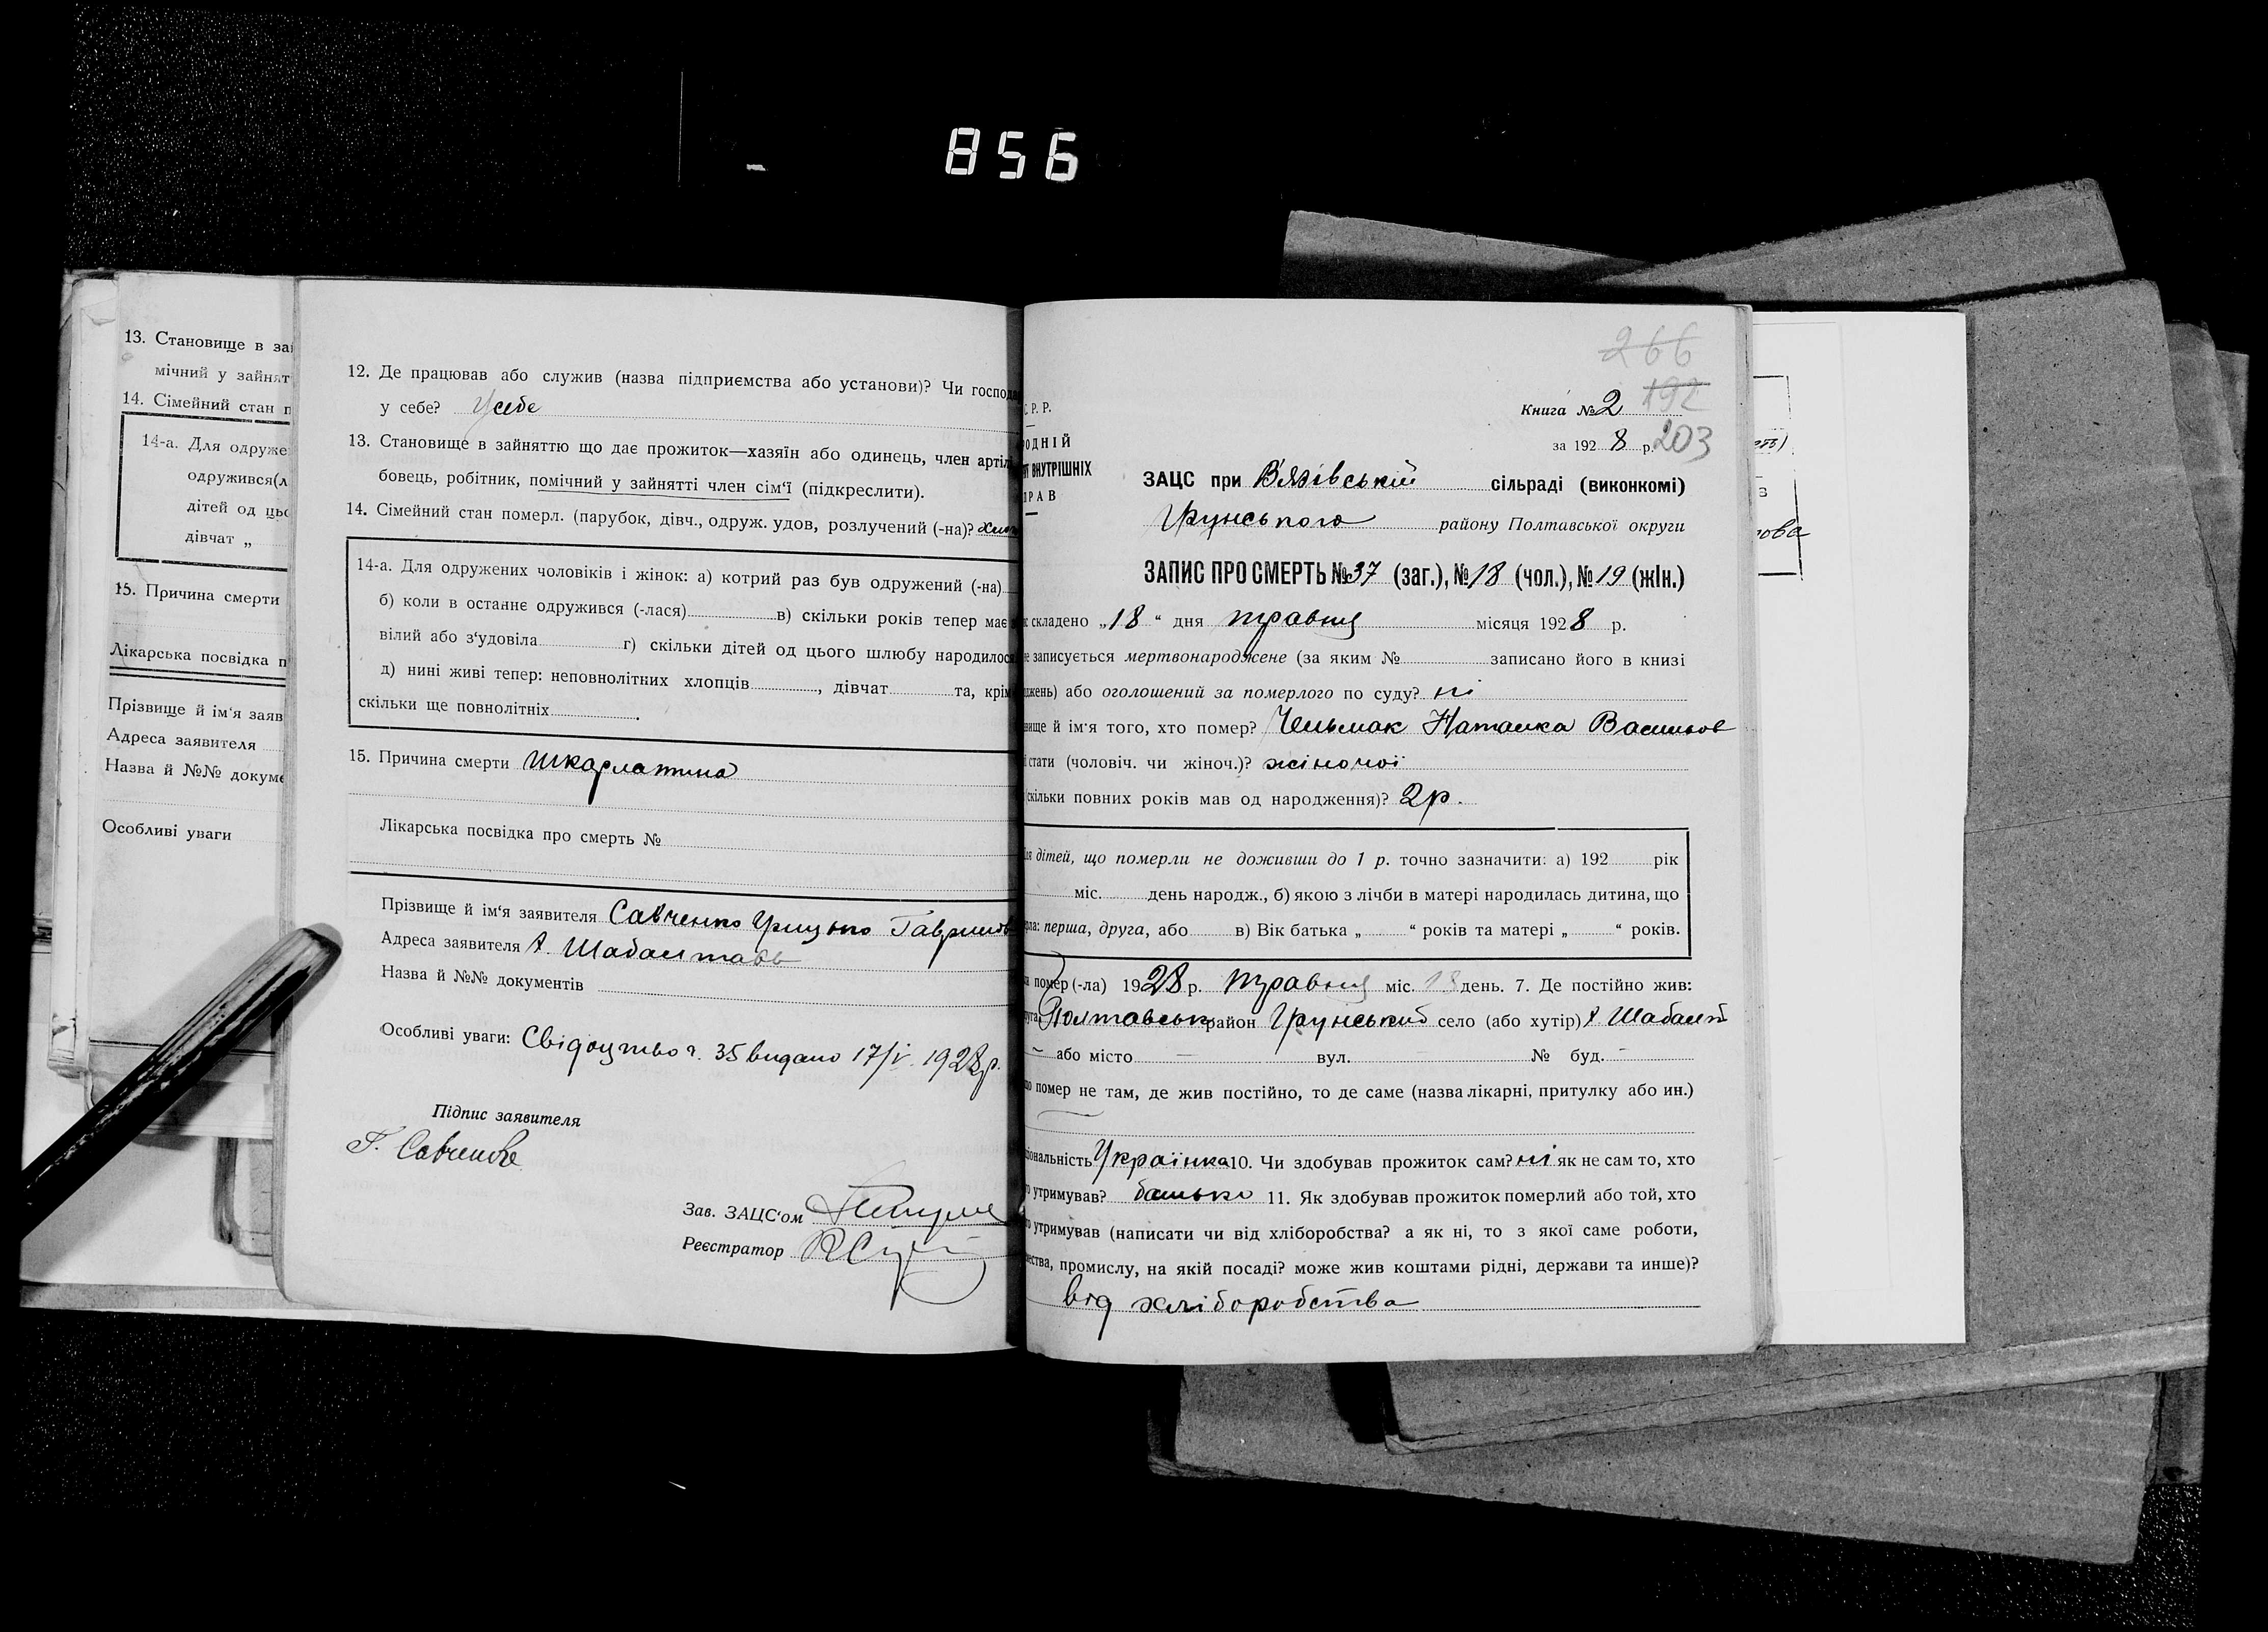 856
13. Становище в зай
мічний у зайнят
14. Сімейний стан п
14-а. Для одруже
одружився(л
дітей од цьо
дівчат „
15. Причина смерти
Лікарська посвідка п
Прізвище й ім'я заяв
Адреса заявителя
Назва й №№ докуме
Особливі уваги
12. Де працював або служив (назва підприємства або установи)? Чи господа
у себе? У себе
13. Становище в зайняттю що дає прожиток—хазяїн або одинець, член артіл
бовець, робітник, помічний у зайнятті член сім'ї (підкреслити).
14. Сімейний стан померл. (парубок, дівч., одруж. удов, розлучений (-на)?
14-а. Для одружених чоловіків і жінок: а) котрий раз був одружений (-на)
б) коли в останнє одружився (-лася) в) скільки років тепер має
вілий або з'удовіла г) скільки дітей од цього шлюбу народилося
д) нині живі тепер: неповнолітних хлопців , дівчат та, крім
скільки ще повнолітніх .
15. Причина смерти Шкарлатина
Лікарська посвідка про смерть №
Прізвище й ім'я заявителя Савченко Грицько Гаврилов
Адреса заявителя х. Шабалтаєв
Назва й №№ документів
Особливі уваги: Свідоцтво ч. 35 видано 17/V 1928р.
Підпис заявителя
Г. Савченко
Зав. ЗАЦС'ом
Реєстратор
266
192
Книга № 2
С. Р. Р.
за 1928 р. 203
РОДНІЙ
ВНУТРІШНІХ
ПРАВ
ЗАЦС при В'язівській сільраді (виконкомі)
Грунського району Полтавської округи
ЗАПИС ПРО СМЕРТЬ № 37 (заг.), № 18 (чол.), № 19 (жін.)
с складено „18“ дня травня місяця 1928 р.
не записується мертвонароджене (за яким № записано його в книзі
джень) або оголошений за померлого по суду? ні
вище й ім'я того, хто помер? Чельмак Наталка Васильов
ї стати (чоловіч. чи жіноч.)? жіночої
(скільки повних років мав од народження)? 2 р.
ля дітей, що померли не доживши до 1 р. точно зазначити: а) 192 рік
міс. день народж., б) якою з лічби в матері народилась дитина, що
рла: перша, друга, або в) Вік батька „ “ років та матері „ “ років.
и помер (-ла) 1928 р. травня міс. 18 день. 7. Де постійно жив:
руга Полтавськ район Грунський село (або хутір) х Шабалт
або місто — вул. № буд. -
що помер не там, де жив постійно, то де саме (назва лікарні, притулку або ин.)
ціональність Українка 10. Чи здобував прожиток сам? ні як не сам то, хто
го утримував? батько 11. Як здобував прожиток померлий або той, хто
го утримував (написати чи від хліборобства? а як ні, то з якої саме роботи,
ества, промислу, на якій посаді? може жив коштами рідні, держави та инше)?
від хліборобства